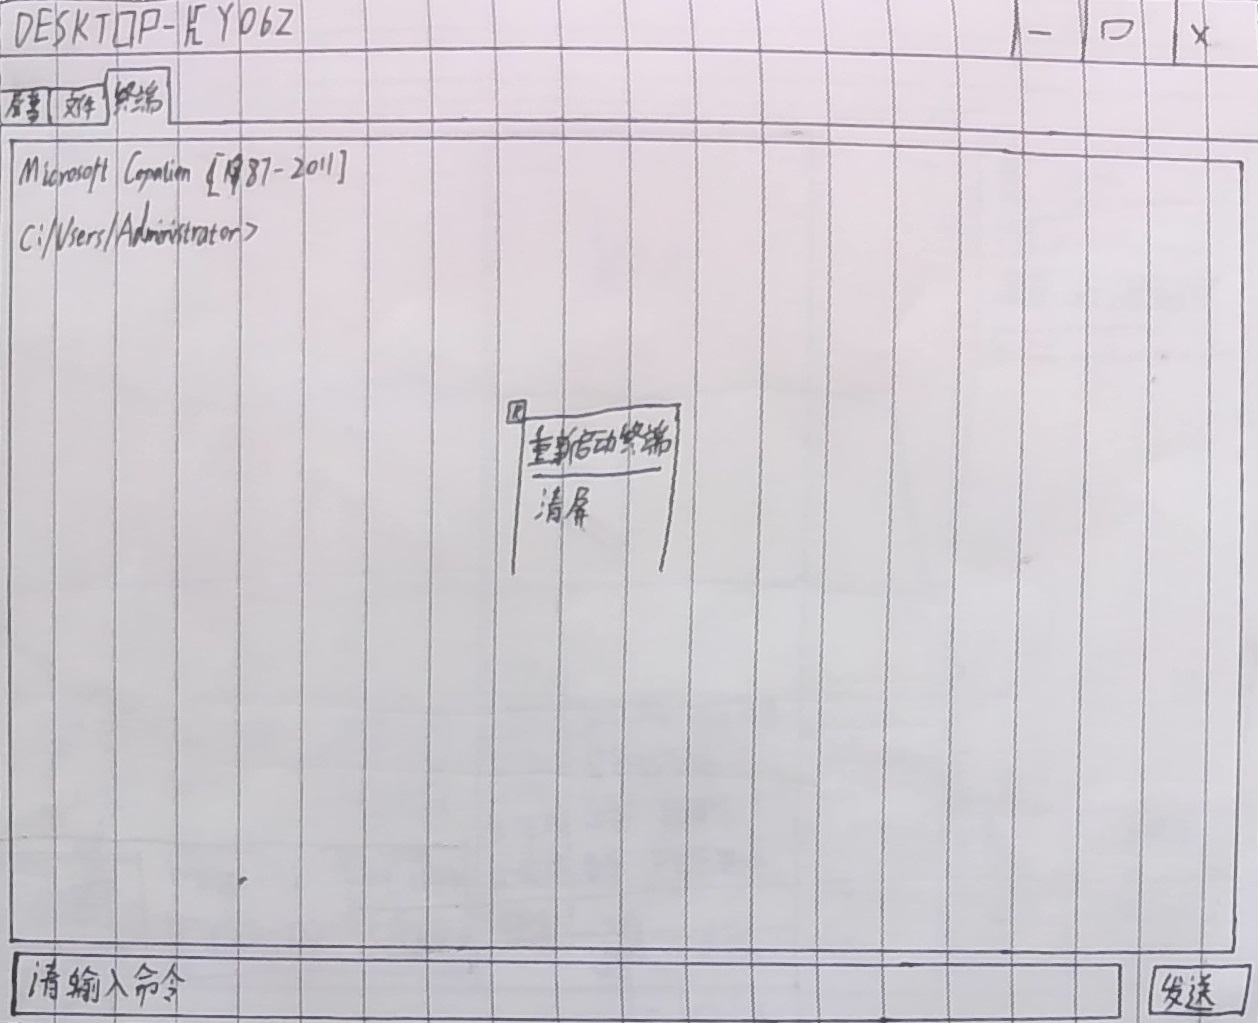 DESKTOP-KY06Z
屏幕 文件 终端
Microsoft Copalion [1987-2011]
C:/Users/Administrator>
R
重新启动终端
清屏
请输入命令
发送